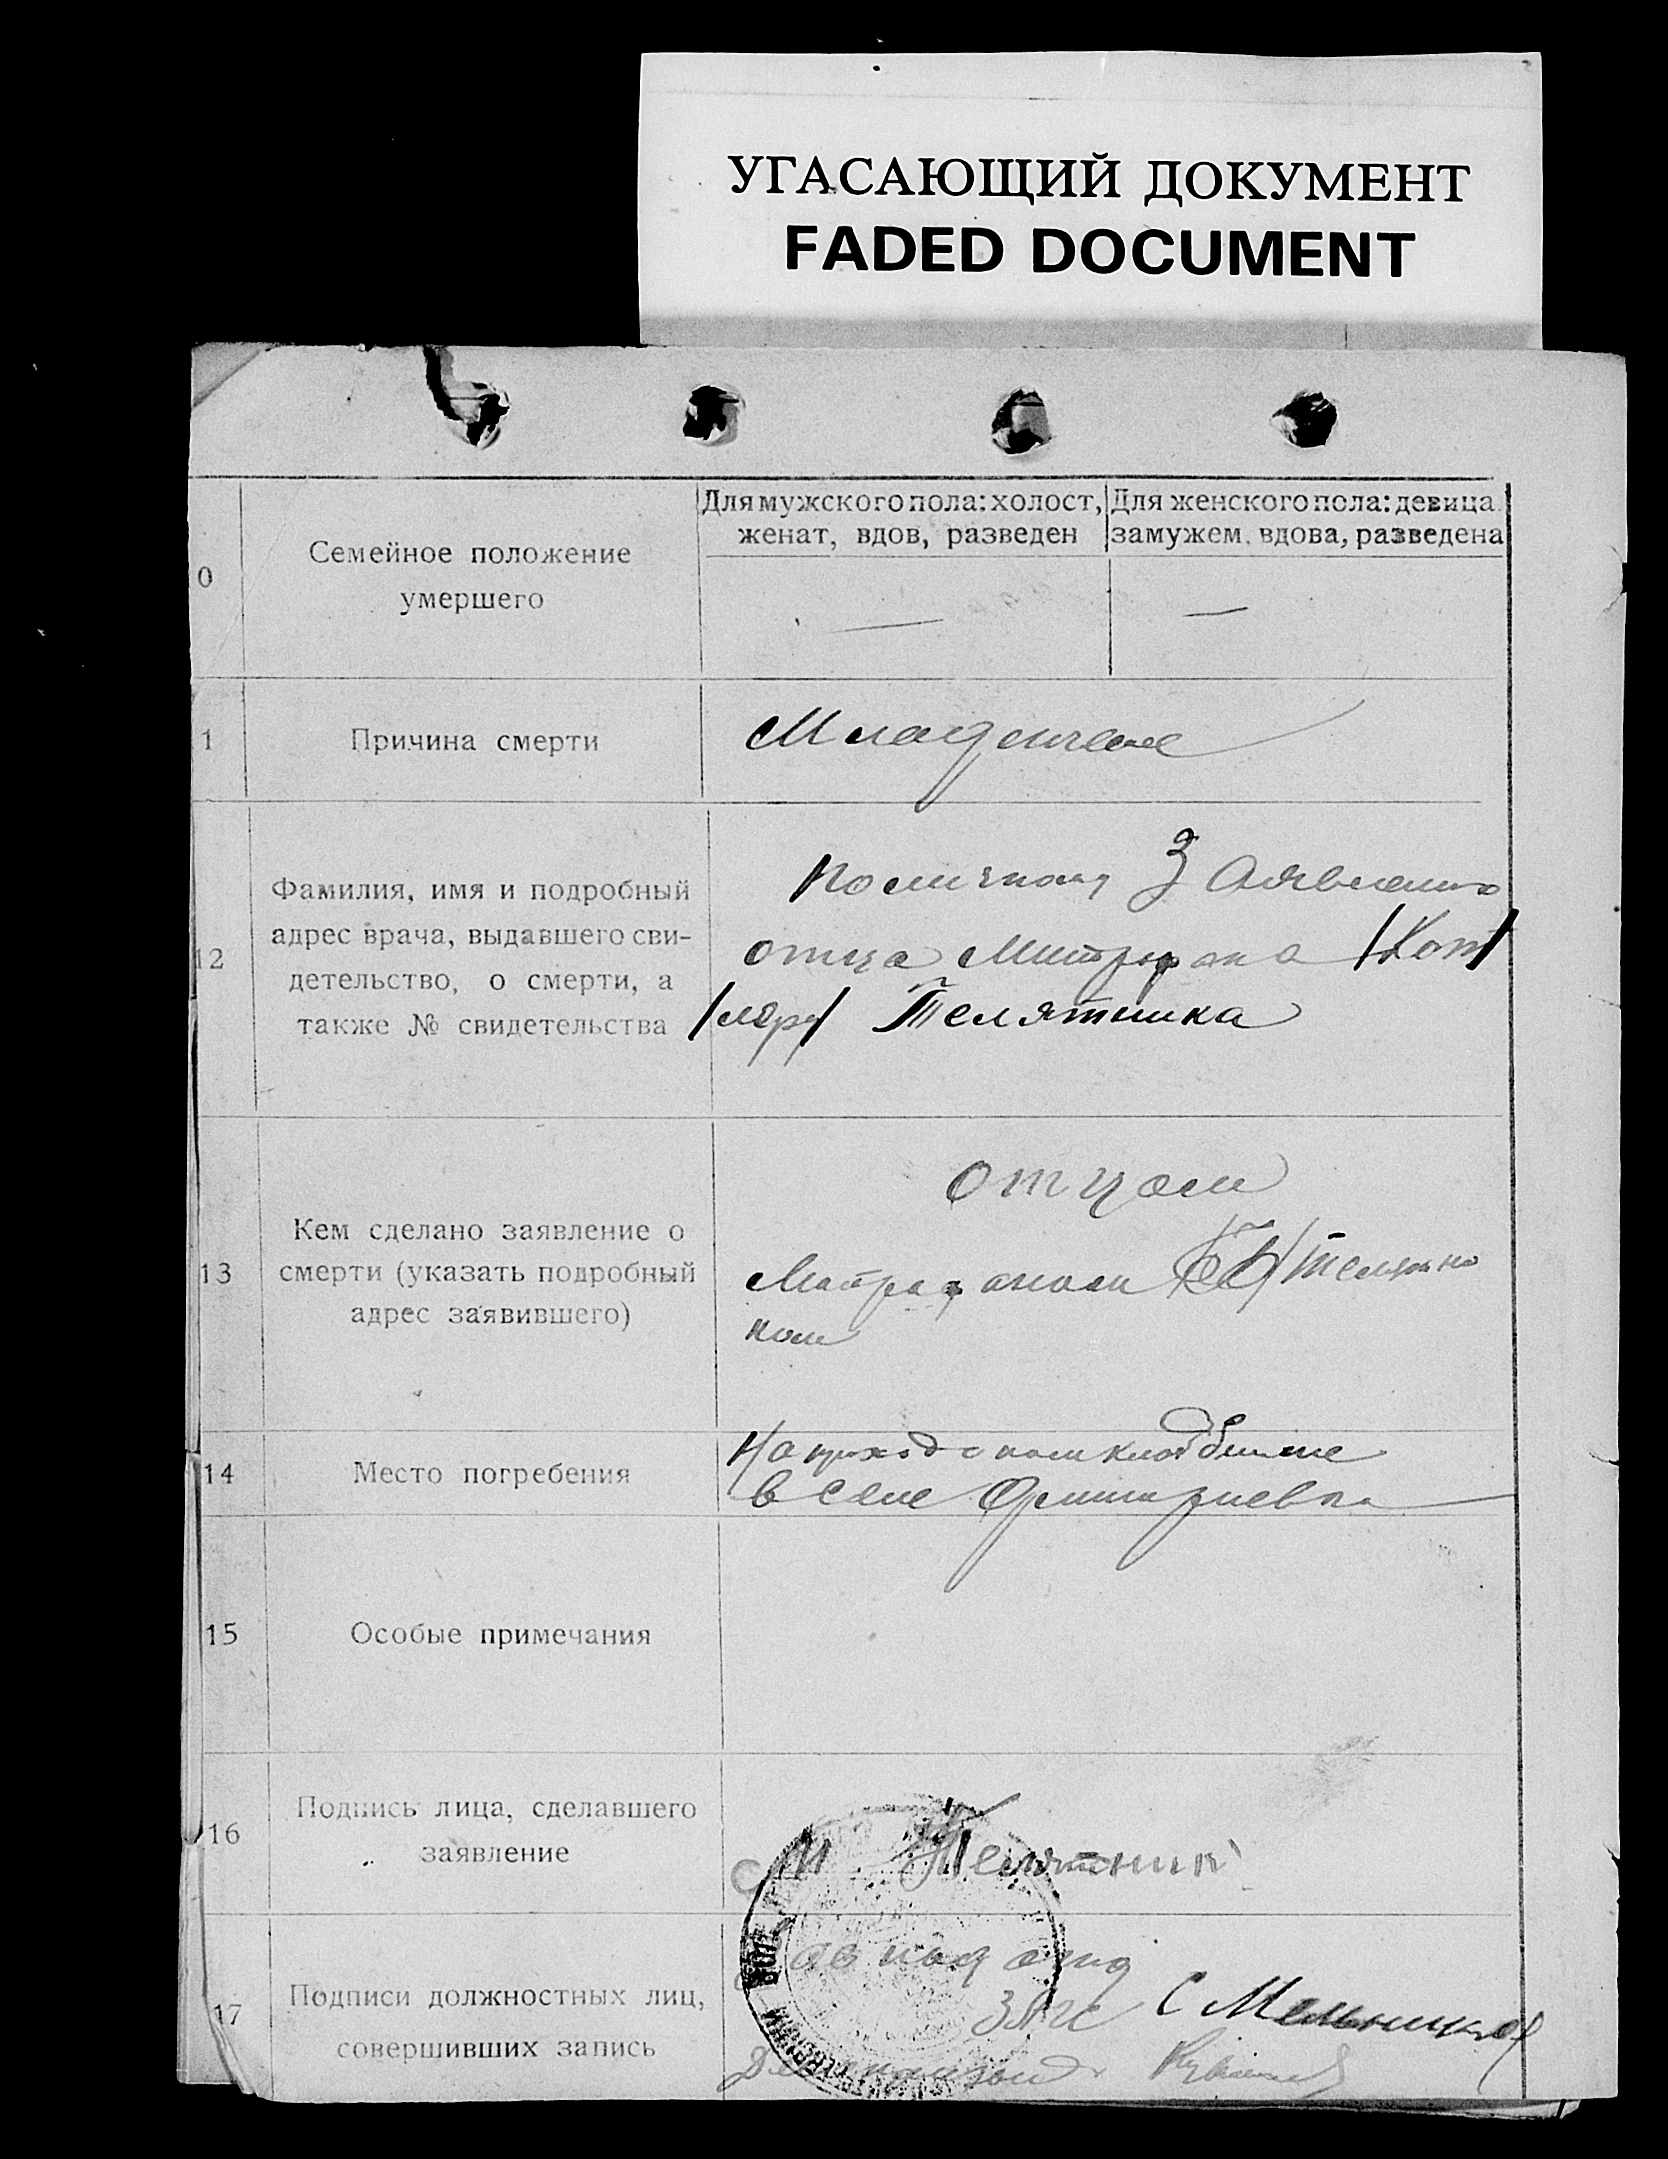 УГАСАЮЩИЙ ДОКУМЕНТ
FADED DOCUMENT
0
Семейное положение
умершего
Для мужского пола: холост,
женат, вдов, разведен
—
Для женского пола: девица
замужем, вдова, разведена
—
1
Причина смерти
Младенческ
12
Фамилия, имя и подробный
адрес врача, выдавшего сви-
детельство, о смерти, а
также № свидетельства
Поличному Заявлению
отца Митрофана
Телятника
13
Кем сделано заявление о
смерти (указать подробный
адрес заявившего)
отцом
Митрофаном Телятни
ком
14
Место погребения
На приходском кладбище
в селе
15
Особые примечания
16
Подпись лица, сделавшего
заявление
М Телятник
17
Подписи должностных лиц,
совершивших запись
Зав под отд
ЗАГС С Мельников